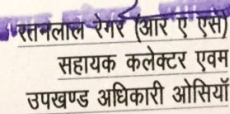 रतनलाल रेगर (आर ए एस)
सहायक कलेक्टर एवम
उपखण्ड अधिकारी ओसियाँ